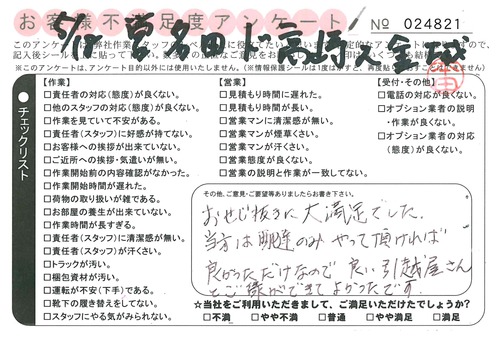 お客様不満足度アンケート
No 024821
【作業】
□責任者の対応(態度)が良くない。
□他のスタッフの対応(態度)が良くない。
□作業を見ていて不安がある。
□責任者(スタッフ)に好感が持てない。
□お客様への挨拶が出来ていない。
□ご近所への挨拶・気遣いが無い。
□作業開始前の内容確認がなかった。
□作業開始時間が遅れた。
□荷物の取り扱いが雑である。
□お部屋の養生が出来ていない。
□作業時間が長すぎる。
□責任者(スタッフ)に清潔感が無い。
□責任者(スタッフ)が汗くさい。
□トラックが汚い。
□梱包資材が汚い。
□運転が不安(下手)である。
□靴下の履き替えをしてない。
□スタッフにやる気がみられない。
チェックリスト
【営業】
□見積もり時間に遅れた。
□見積もり時間が長い。
□営業マンに清潔感が無い。
□営業マンが煙草くさい。
□営業マンが汗くさい。
□営業態度が良くない。
□営業の説明と作業が一致してない。
【受付・その他】
□電話の対応が良くない。
□オプション業者の説明
・作業が良くない。
□オプション業者の対応
(態度)が良くない。
その他、ご意見・ご要望等ありましたらお書き下さい。
おせじ抜きに大満足でした。
当方は配達のみやって頂ければ
良かっただけなので良い引越屋さん
とご縁ができてよかったです。
☆当社をご利用いただきまして、ご満足いただけたでしょうか?
□不満 □やや不満 □普通 □やや満足 □満足